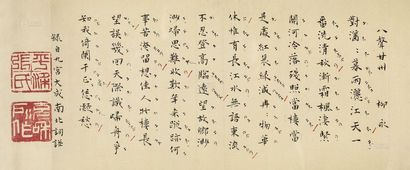 八聲甘州 柳永
對瀟〻暮雨灑江天一
番洗清秋漸霜風淒緊
關河冷落殘照當樓
是處紅衰綠減冉〻物華
休惟有長江水無語東流
不忍登高臨遠望故鄉渺
渺歸思難收歎年來蹤跡何
事苦淹留想佳人妝樓長
望誤幾回天際識歸舟爭
知我倚闌干正恁凝愁
錄自九宮大成南北詞譜